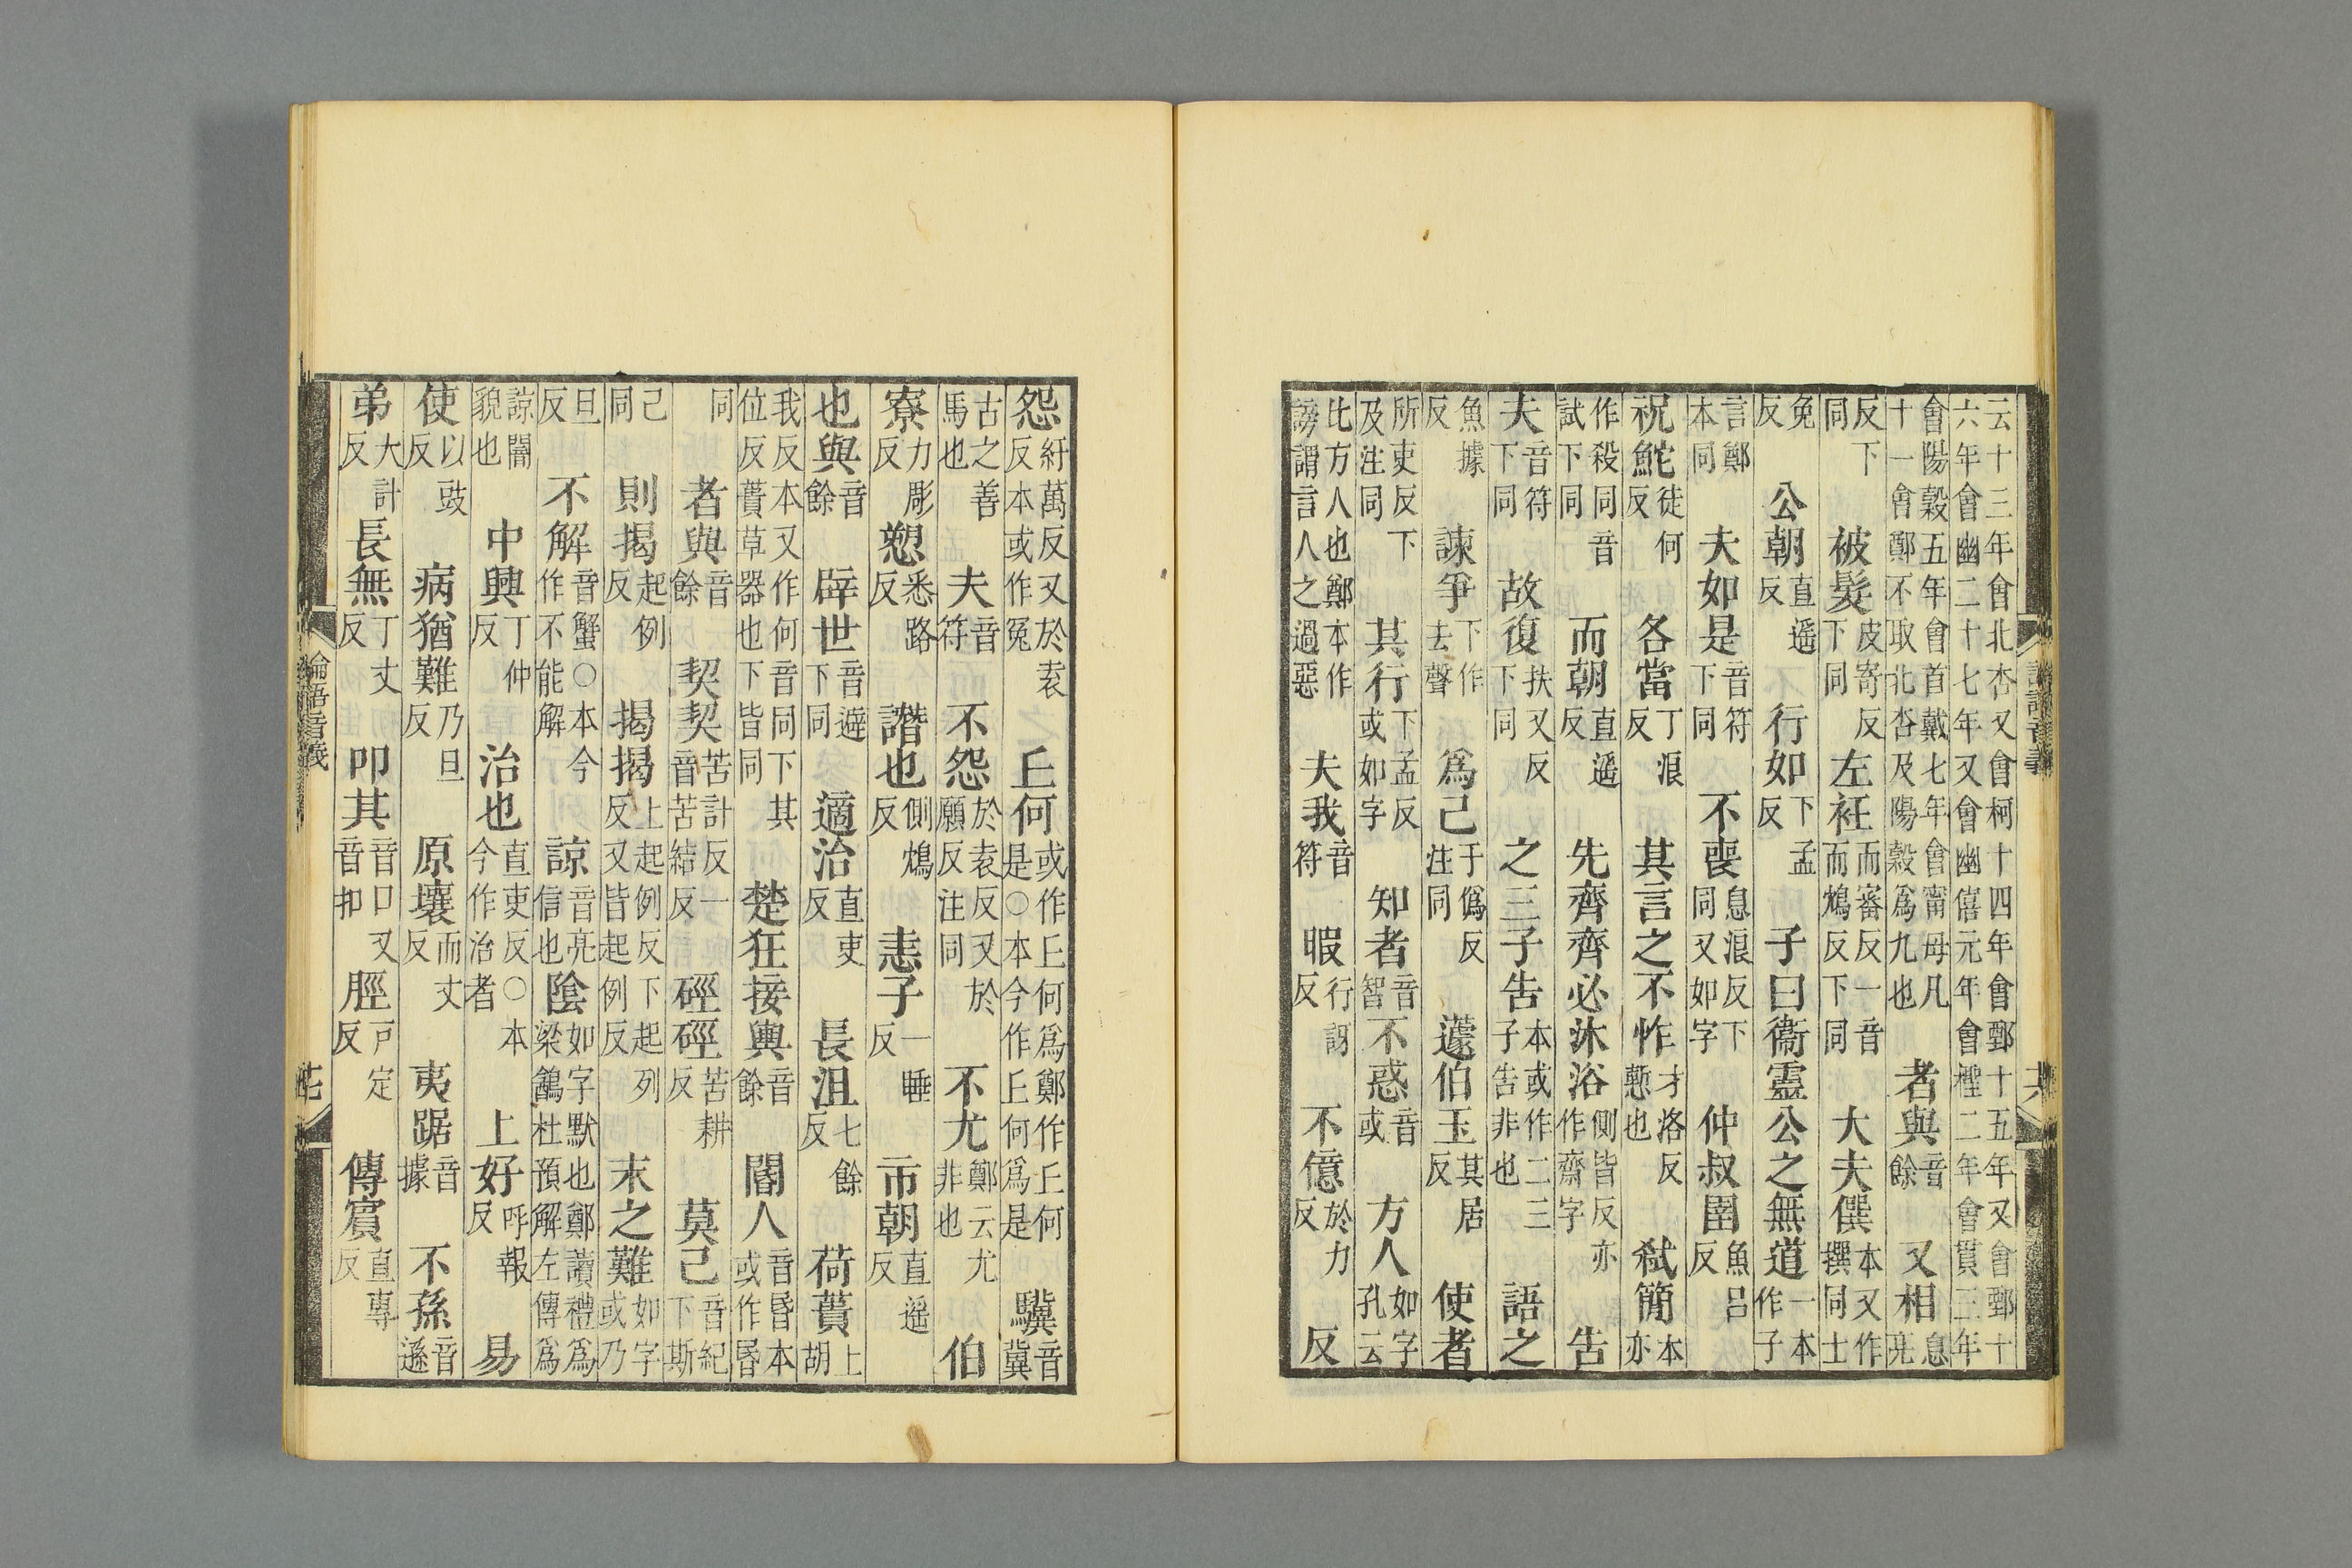 論語音義 十六
云十三年會北杏又會柯十四年會鄄十五年又會鄄十六年會幽二十七年又會幽僖元年會檉二年會貫三年
會陽穀五年會首戴七年會甯母凡十一會鄭不取北杏及陽穀爲九也 者與音餘 又相息亮
反下同 被髮皮寄反下同 左衽而審反一音而鴆反下同 大夫僎本又作撰同士
免反 公朝直遥反 行如下孟反 子曰衞靈公之無道一本作子
言鄭本同 夫如是音符下同 不喪息浪反下同又如字 仲叔圉魚呂反
祝鮀徒何反 各當丁浪反 其言之不怍才洛反慙也 弒簡本亦
作殺同音試下同 而朝直遥反 先齊齊必沐浴側皆反亦作齋字 告
夫音符下同 故復扶又反下同 之三子告本或作二三子告非也 語之
魚據反 諫爭下作去聲 爲己于僞反注同 蘧伯玉其居反 使者
所吏反下及注同 其行下孟反或如字 知者音智 不惑音或 方人如字孔云
比方人也鄭本作謗謂言人之過惡 夫我音符 暇行訝反 不億於力反 反
怨紆萬反又於袁反本或作冤 丘何或作丘何爲鄭作丘何是○本今作丘何爲是 驥音冀
古之善馬也 夫音符 不怨於袁反又於願反注同 不尤鄭云尤非也 伯
寮力彫反 愬悉路反 譖也側鴆反 恚子一睡反 市朝直遥反
也與音餘 辟世音避下同 適治直吏反 長沮七餘反 荷蕢上胡
我反本又作何音同下其位反蕢草器也下皆同 楚狂接輿音餘 閽人音昏本或作昬
同 者與音餘 契契苦計反一音苦結反 硜硜苦耕反 莫己音紀下斯
己同 則揭起例反 揭揭上起例反下起列反又皆起例反 末之難如字或乃
旦反 不解音蟹○本今作不能解 諒音亮信也 陰如字默也鄭讀禮爲梁鵪杜預解左傳爲
諒闇貌也 中興丁仲反 治也直吏反○本今作治者 上好呼報反 易
使以豉反 病猶難乃旦反 原壤而丈反 夷踞音據 不孫音遜
弟大計反 長無丁丈反 叩其音口又音扣 脛戸定反 傳賓直專反
論語音義 十七